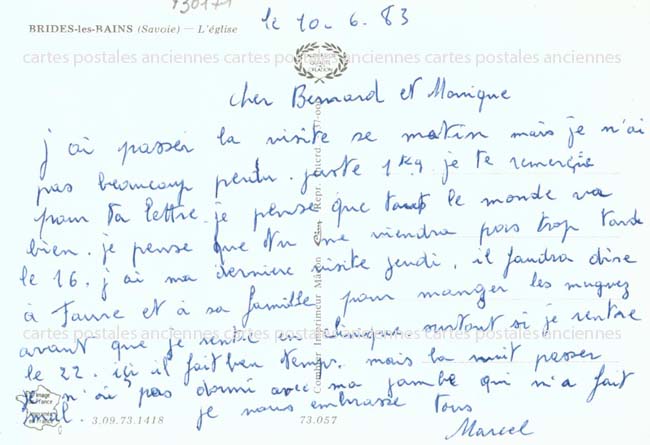 130171
BRIDES-les-BAINS (Savoie) — L'église
le 10. 6. 83
cartes postales anciennes cartes postales anciennes cartes postales anciennes
cher Bernard et Monique
j ai passer la visite se matin mais je n'ai
pas beaucoup perdu. juste 1 kg je te remercie
pour ta lettre. je pense que tout le monde va
bien. je pense que tu me viendra pas trop tarde
le 16. j ai ma derniere visite jeudi. il faudra dire
à Faure et à sa famille pour manger les muguez
cartes postales anciennes cartes postales anciennes cartes postales anciennes
avant que je rentre en clinique surtout si je rentre
le 22. ici il fait beau temps. mais la nuit passer
je n'ai pas dormi avec ma jambe qui m'a fait
mal. je vous embrasse tous
Marcel
3.09.73.1418
73.057
Combier Imprimeur Mâcon